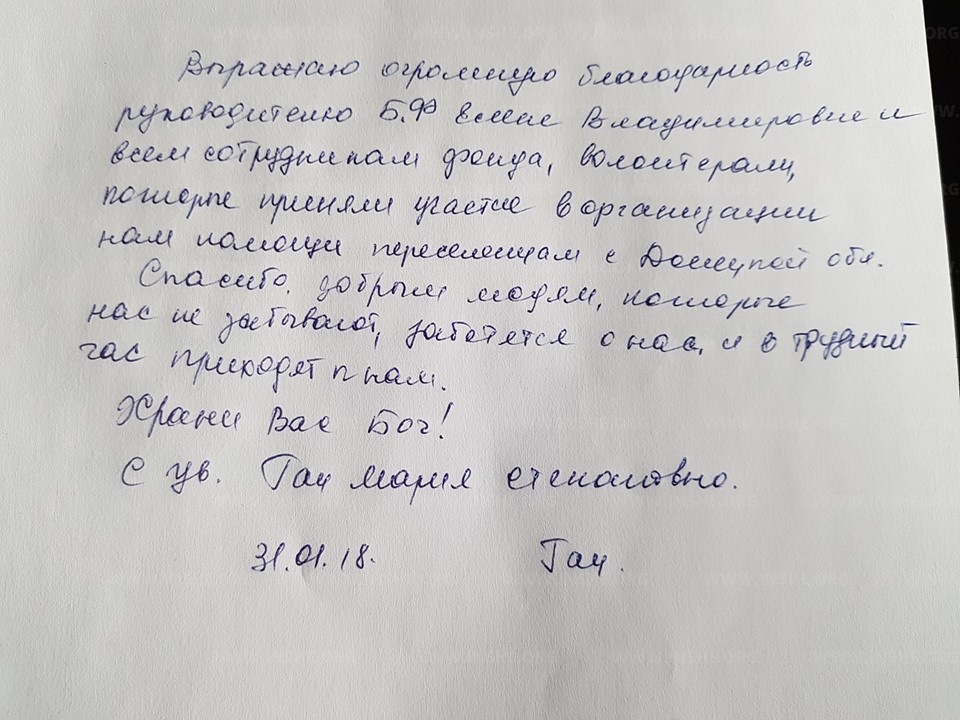 Выражаю огромную благодарность
руководителю Б.Ф Елене Владимировне и
всем сотрудникам фонда, волонтерам,
которые приняли участие в организации
нам помощи переселенцам с Донецкой обл.
Спасибо. добрым людям, которые
нас не забывают, заботятся о нас, и в трудный
час приходят к нам.
Храни Вас Бог!
С ув. Гац Мария Степановна.
31.01.18. Гац.